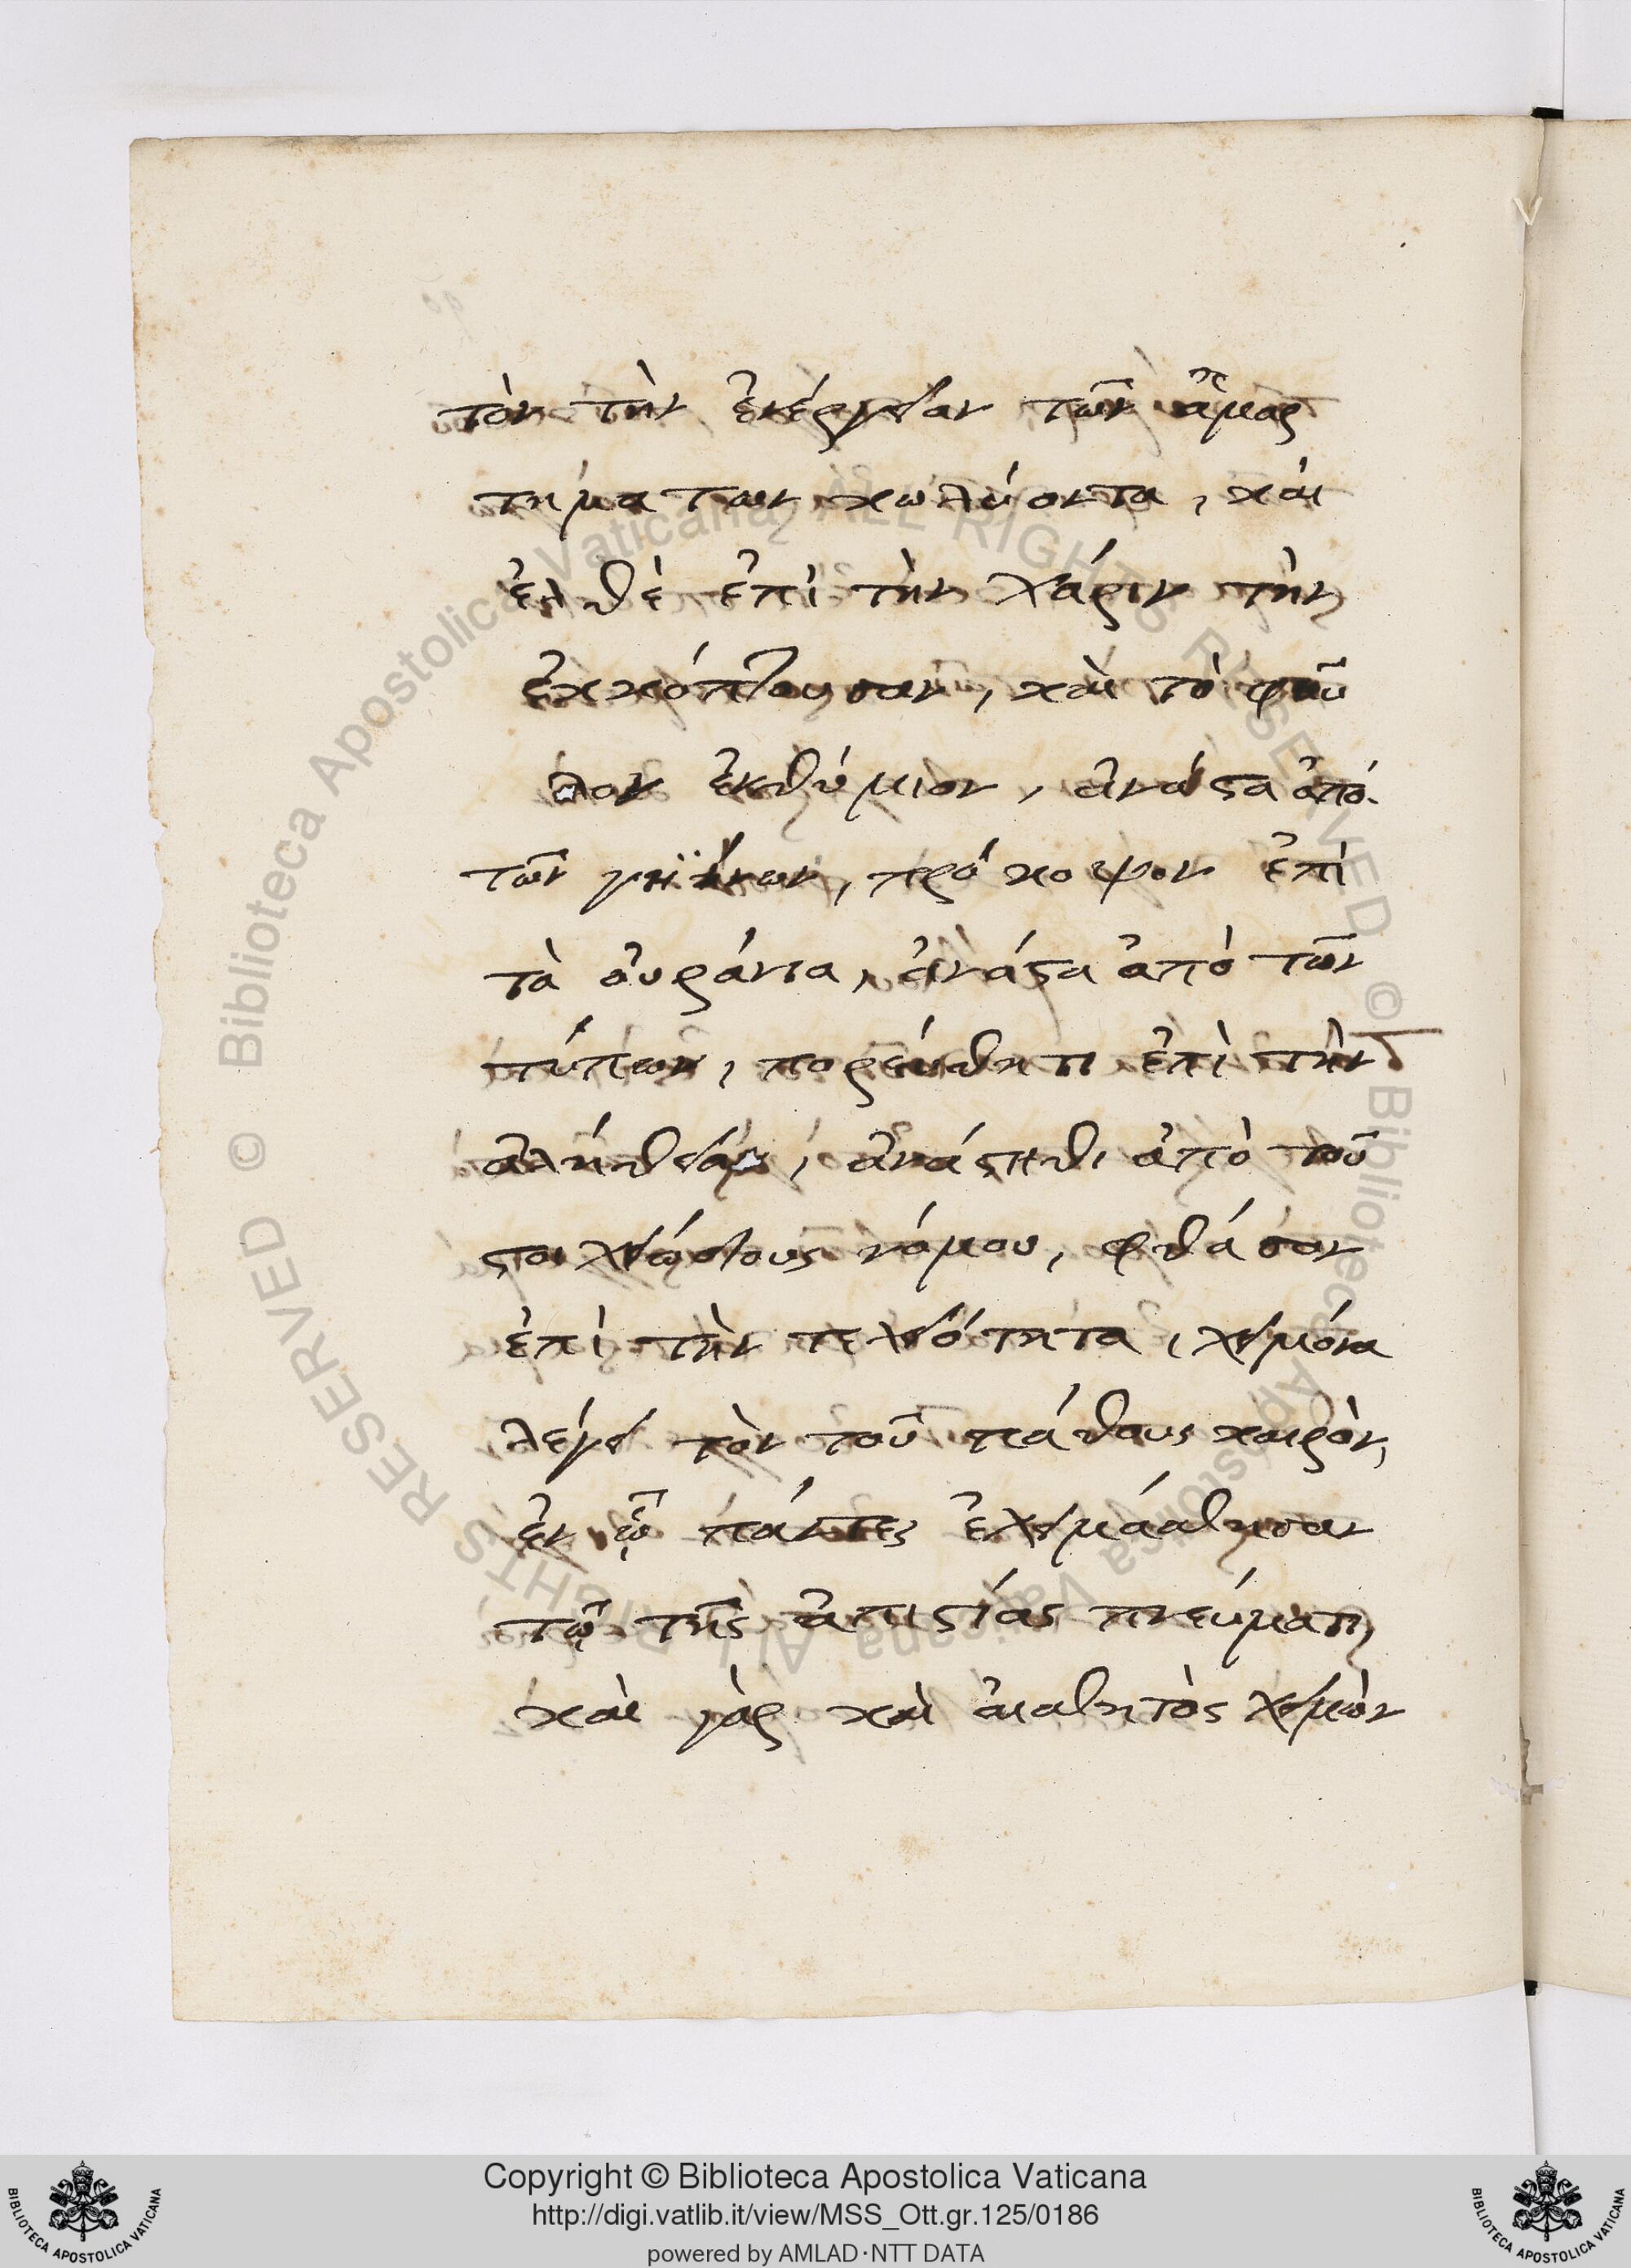 τὸν τὴν ἐνέργειαν τῶν ἁμαρ
τημάτων κωλύοντα, καὶ
ἐλθὲ ἐπὶ τὴν χάριν τὴν
ἐκκόπτουσαν, καὶ τὸ φαῦ
λον ἐνθύμιον, ἀνάστα ἀπό
τῶν γηΐνων, πρόκοψον ἐπὶ
τὰ οὐράνια, ἀνάστα ἀπὸ τῶν
τύπων, πορεύθητι ἐπὶ τὴν
ἀλήθειαν, ἀνάστηθι ἀπὸ τοῦ
στοιχειώδους νόμου, φθάσον
ἐπὶ τὴν τελειότητα, χειμῶνα
λέγει τὸν τοῦ πάθους καιρὸν,
ἐν ᾧ πάντες ἐχειμάσθησαν
τῷ τῆς ἀπιστίας πνεύματι,
καὶ γὰρ καὶ αἰσθητὸς χειμὼν
Copyright © Biblioteca Apostolica Vaticana
http://digi.vatlib.it/view/MSS_Ott.gr.125/0186
powered by AMLAD·NTT DATA
BIBLIOTECA APOSTOLICA VATICANA
BIBLIOTECA APOSTOLICA VATICANA
© Biblioteca Apostolica Vaticana ALL RIGHTS RESERVED © Biblioteca Apostolica Vaticana ALL RIGHTS RESERVED